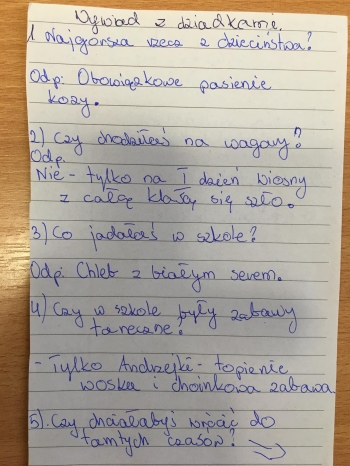 Wywiad z dziadkami.
1 Najgorsza rzecz z dzieciństwa?
Odp: Obowiązkowe pasienie
kozy.
2) Czy chodziłaś na wagary?
Odp.
Nie - tylko na I dzień wiosny
z całą klasą się szło.
3) Co jadałaś w szkole?
Odp: Chleb z białym serem.
4) Czy w szkole były zabawy
taneczne?
- Tylko Andrzejki - topienie
woska i choinkowa zabawa.
5). Czy chciałabyś wrócić do
tamtych czasów?